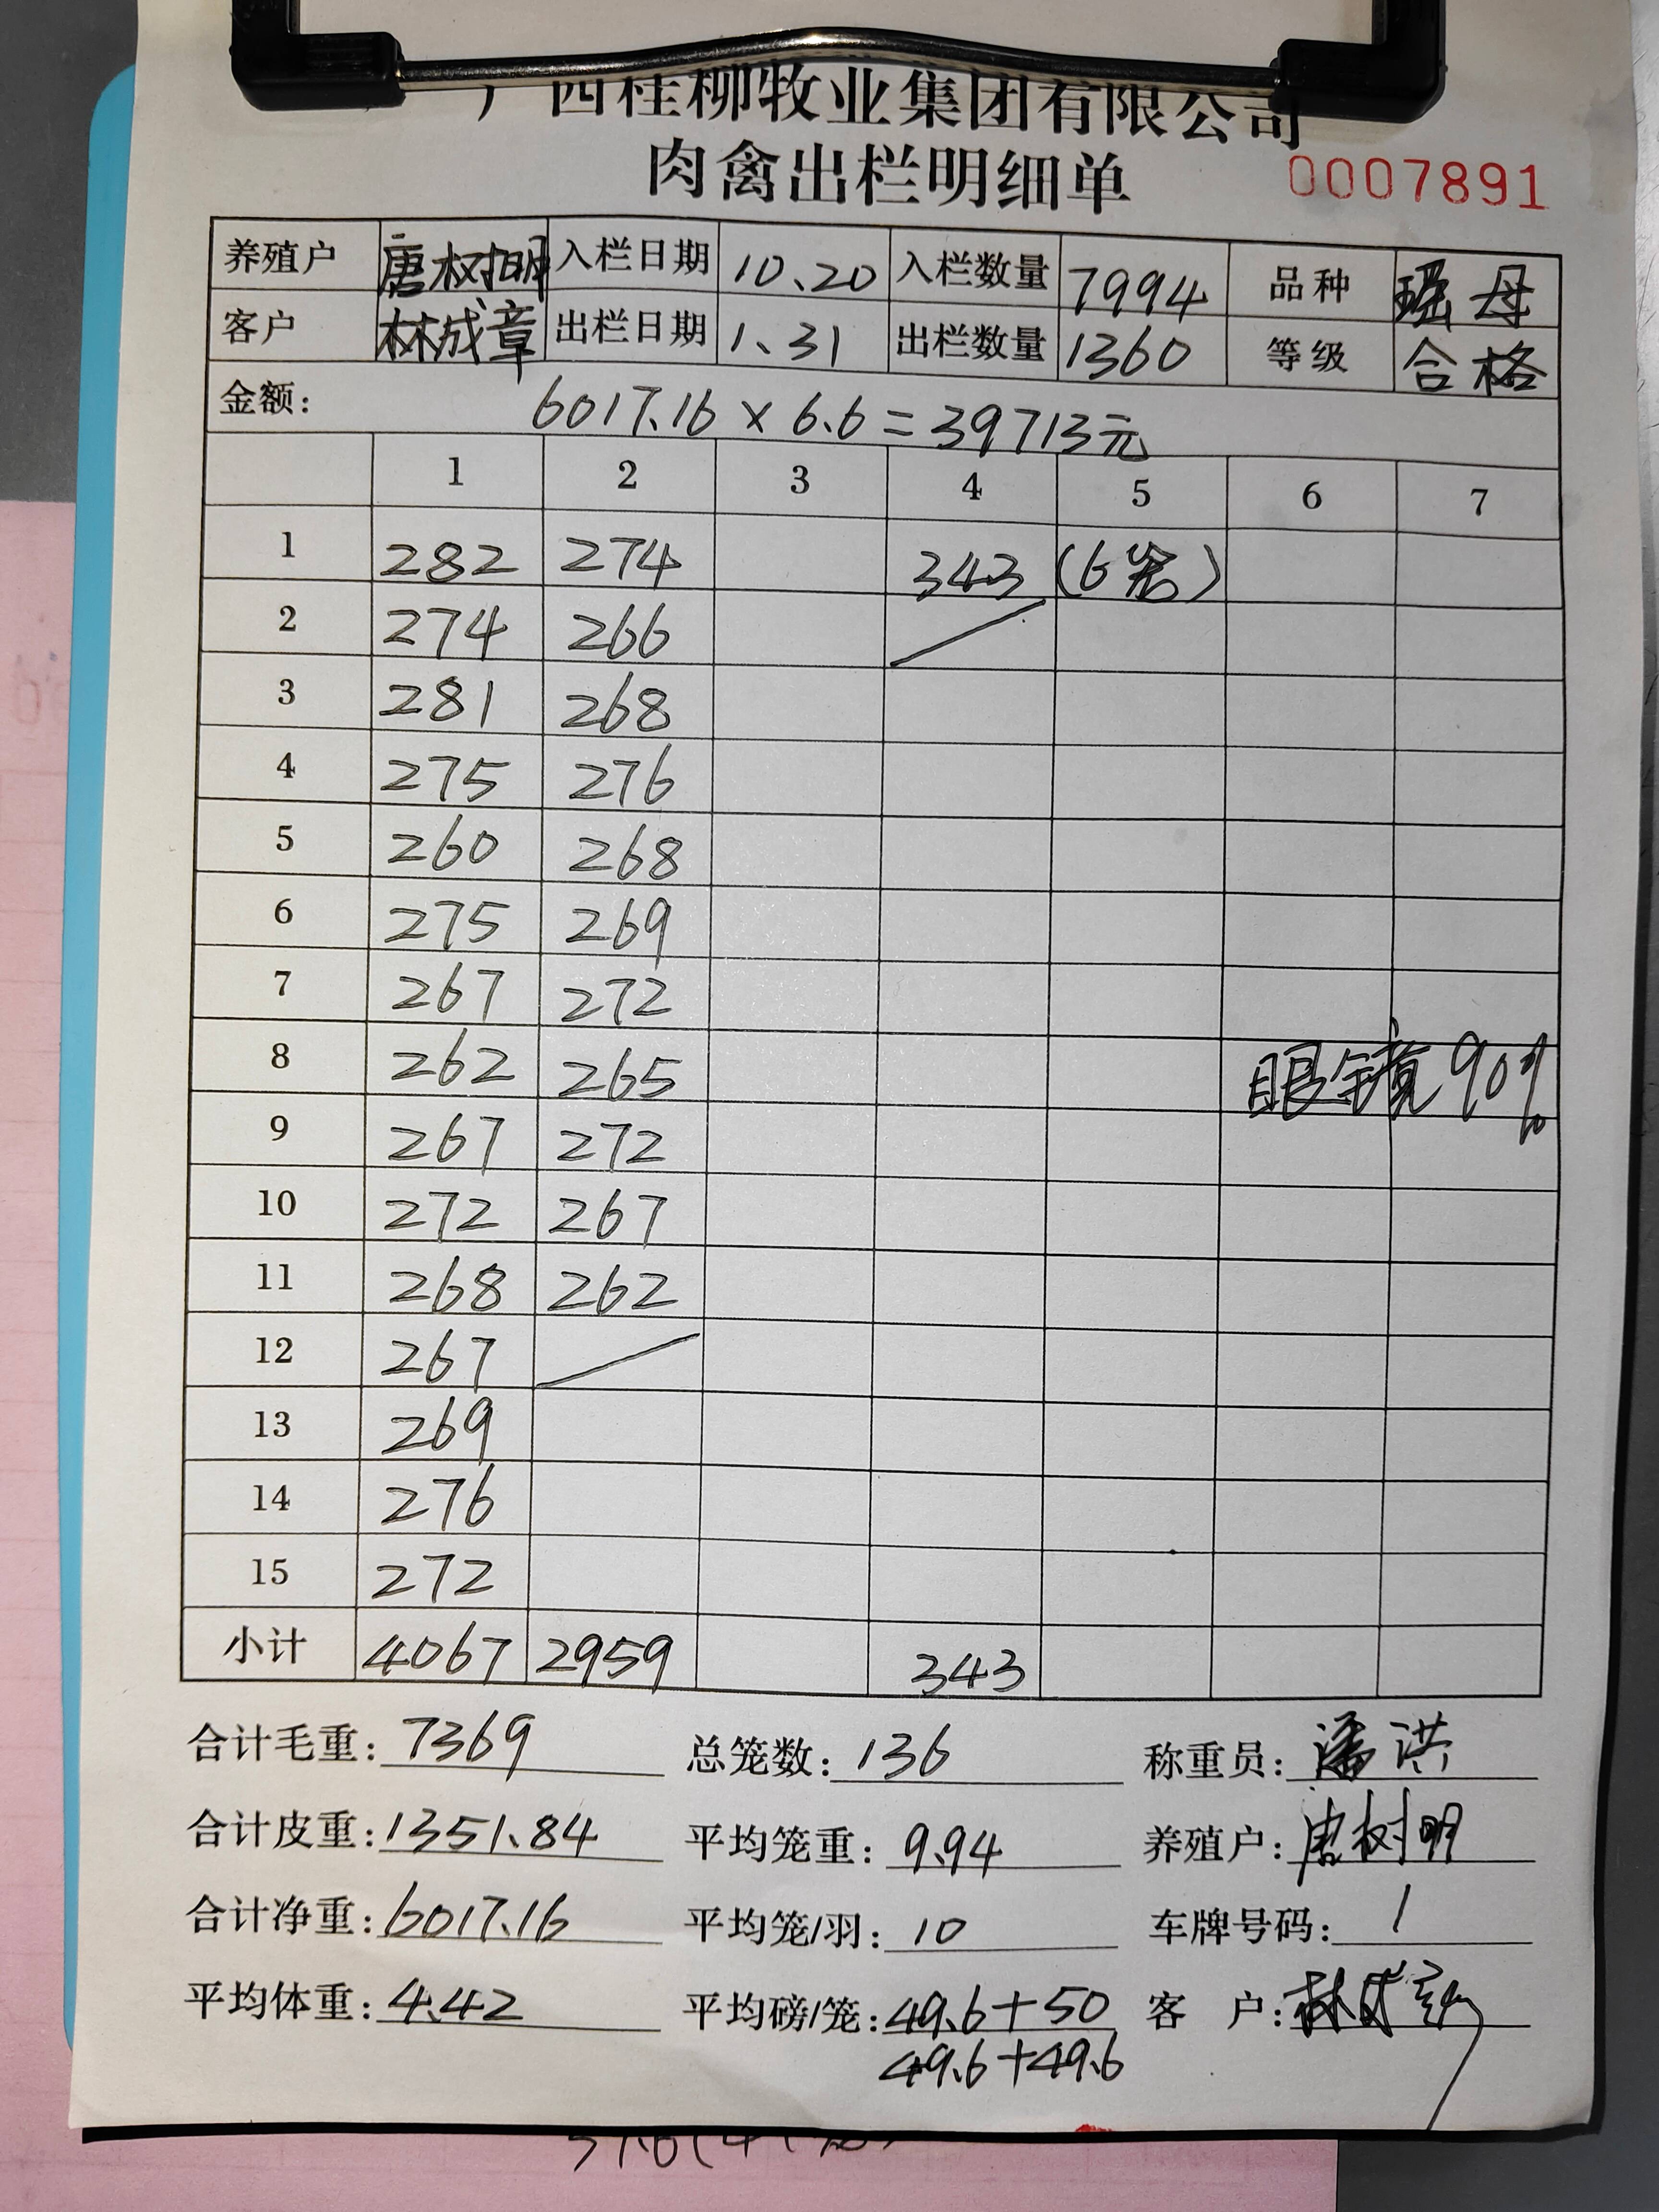 广西桂柳牧业集团有限公司
肉禽出栏明细单 0007891
养殖户 唐树明 入栏日期 10、20 入栏数量 7994 品种 瑶母
客户 林成章 出栏日期 1、31 出栏数量 1360 等级 合格
金额: 6017.16 × 6.6 = 39713元
1 2 3 4 5 6 7
1 282 274 343 (6笼)
2 274 266
3 281 268
4 275 276
5 260 268
6 275 269
7 267 272
8 262 265 眼镜90%
9 267 272
10 272 267
11 268 262
12 267
13 269
14 276
15 272
小计 4067 2959 343
合计毛重: 7369 总笼数: 136 称重员: 潘洪
合计皮重: 1351.84 平均笼重: 9.94 养殖户: 唐树明
合计净重: 6017.16 平均笼/羽: 10 车牌号码: 1
平均体重: 4.42 平均磅/笼: 49.6+50 客 户: 林成章
49.6+49.6